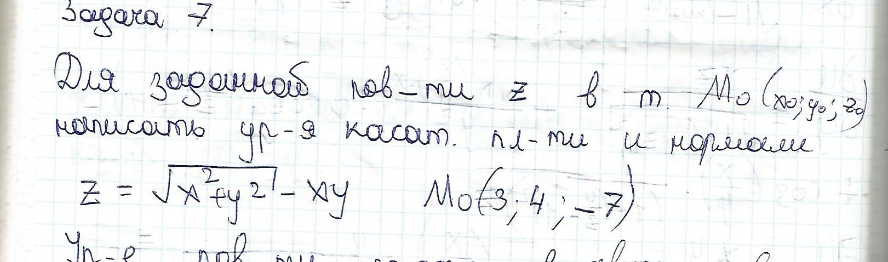 Задача 7.
Для заданной пов-ти z в т. M0(x0; y0; z0)
написать ур-я касат. пл-ти и нормали
z = √x²+y² - xy M0(3; 4; -7)
Ур-е